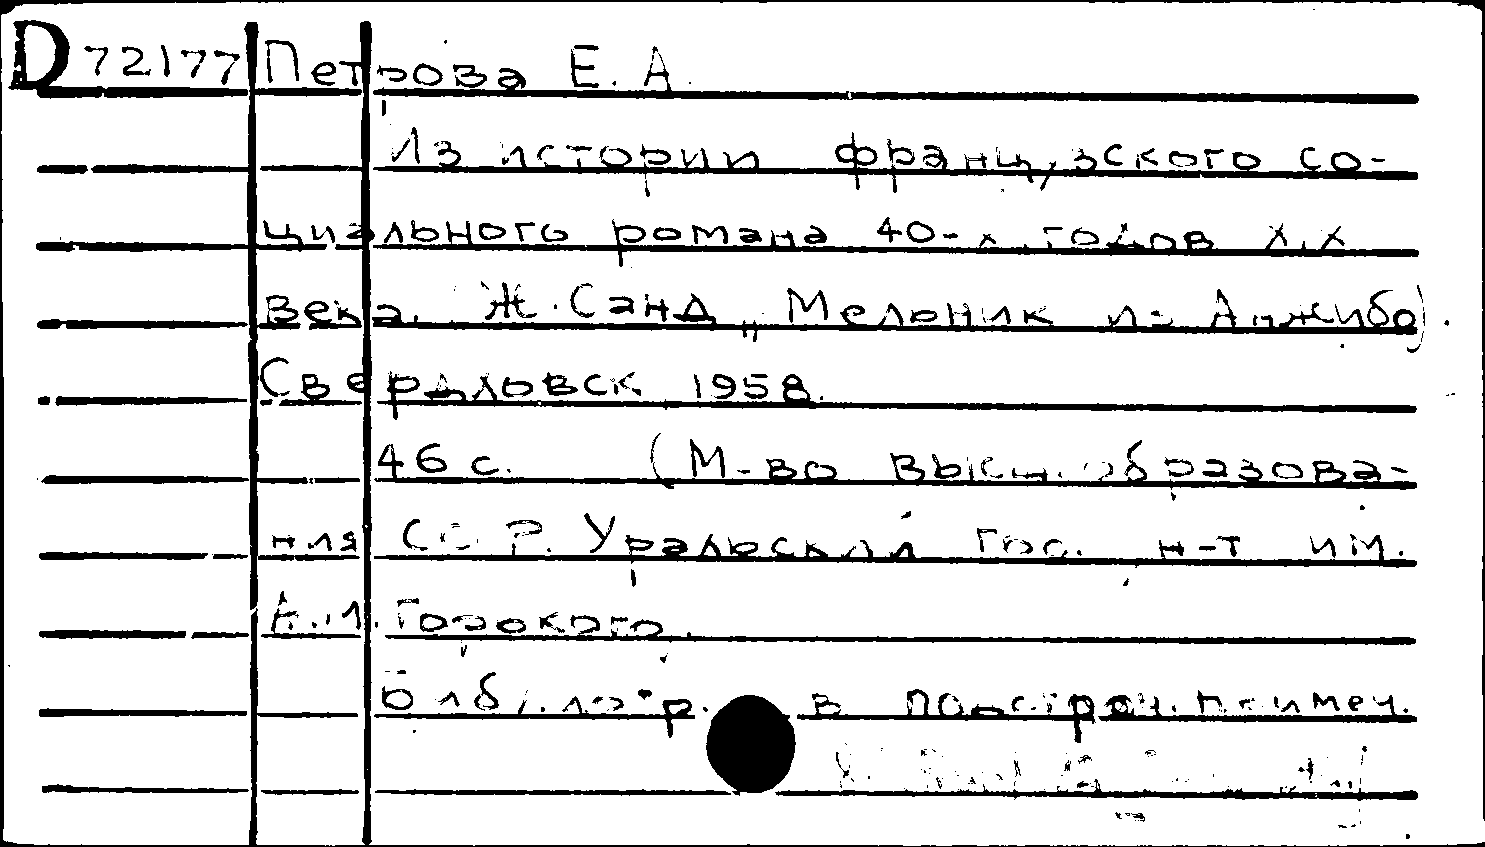 D72177 Петрова Е. А.
Из истории французского со-
циального романа 40-х годов XIX
века. Ж. Санд „Мельник из Анжибо).
Свердловск 1958.
46 с. (М-во высш. образова-
ния СССР. Уральский гос. ун-т им.
А.М. Горького.
Библиогр. в подстроч. примеч.